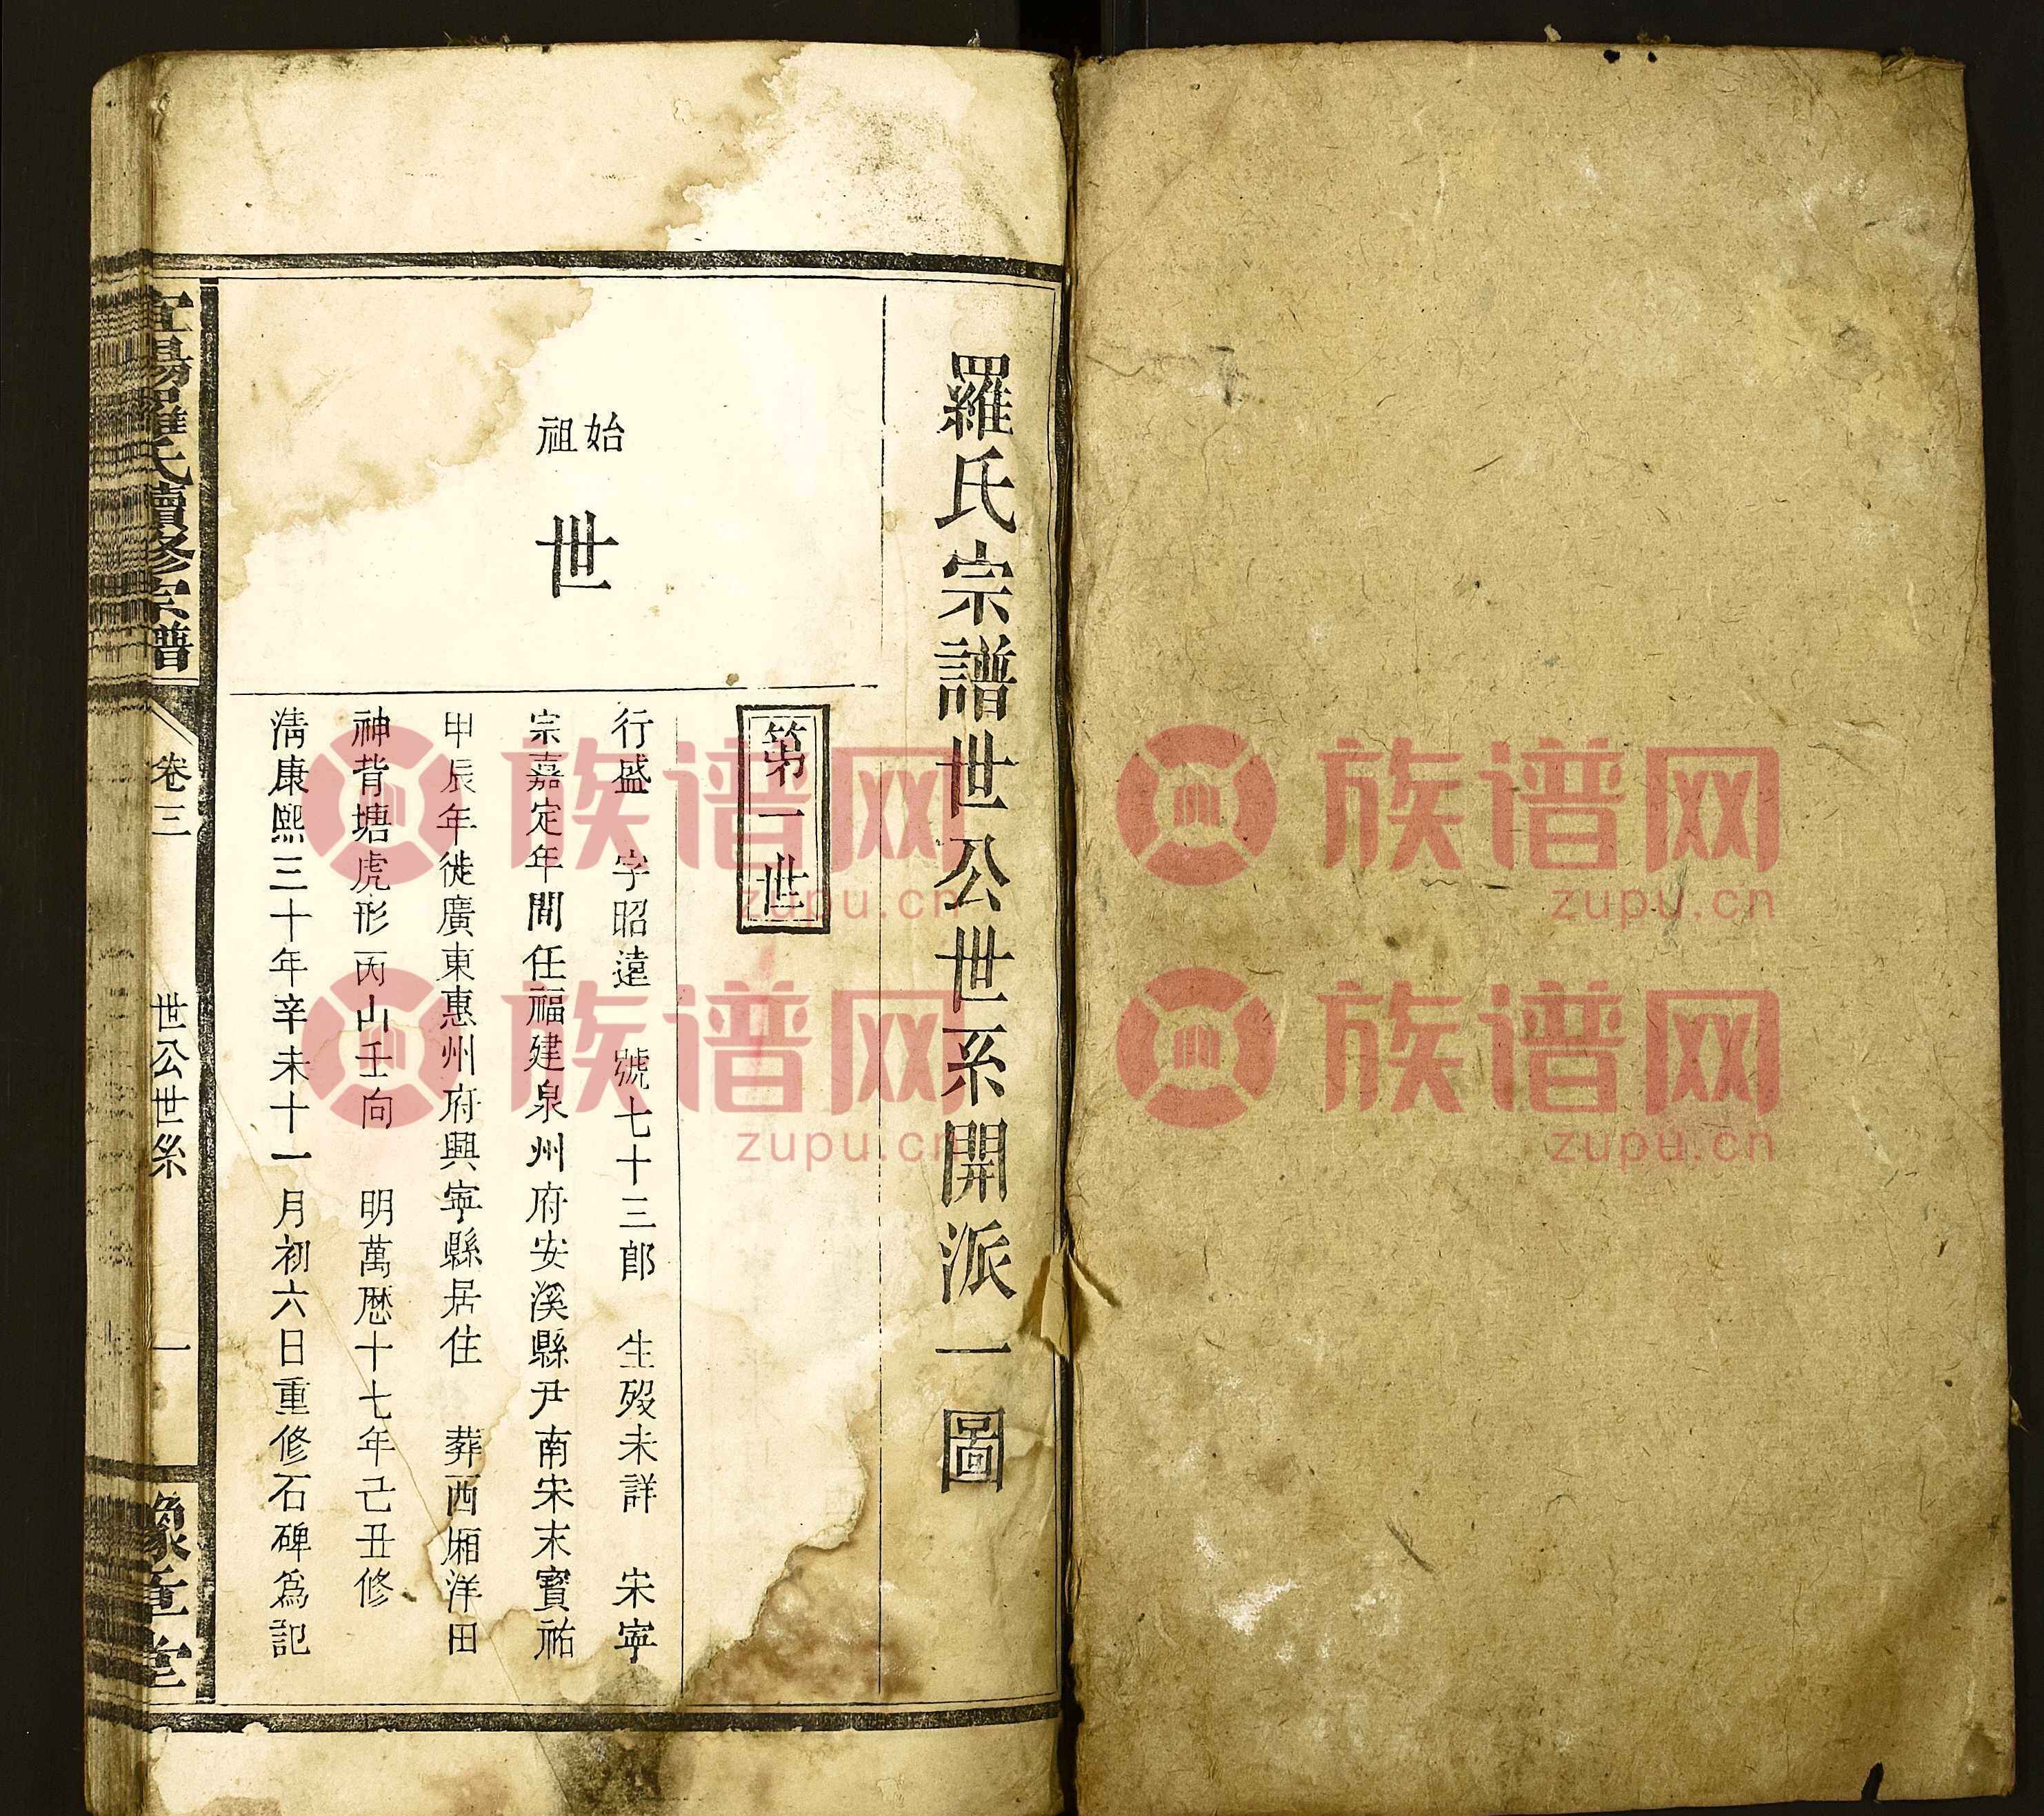 羅氏宗譜世公世系開派一圖
始祖
世
第一世
行盛　字昭遠　號七十三郎　生歿未詳　宋寧
宗嘉定年間任福建泉州府安溪縣尹南宋末寳祐
甲辰年徙廣東惠州府興寧縣居住　葬西厢洋田
神背塘虎形丙山壬向　明萬歷十七年己丑修
淸康熙三十年辛未十一月初六日重修石碑爲記
羅氏續修宗譜
卷三
世公世系
一
豫章堂
族谱网
zupu.cn
族谱网
zupu.cn
族谱网
zupu.cn
族谱网
zupu.cn